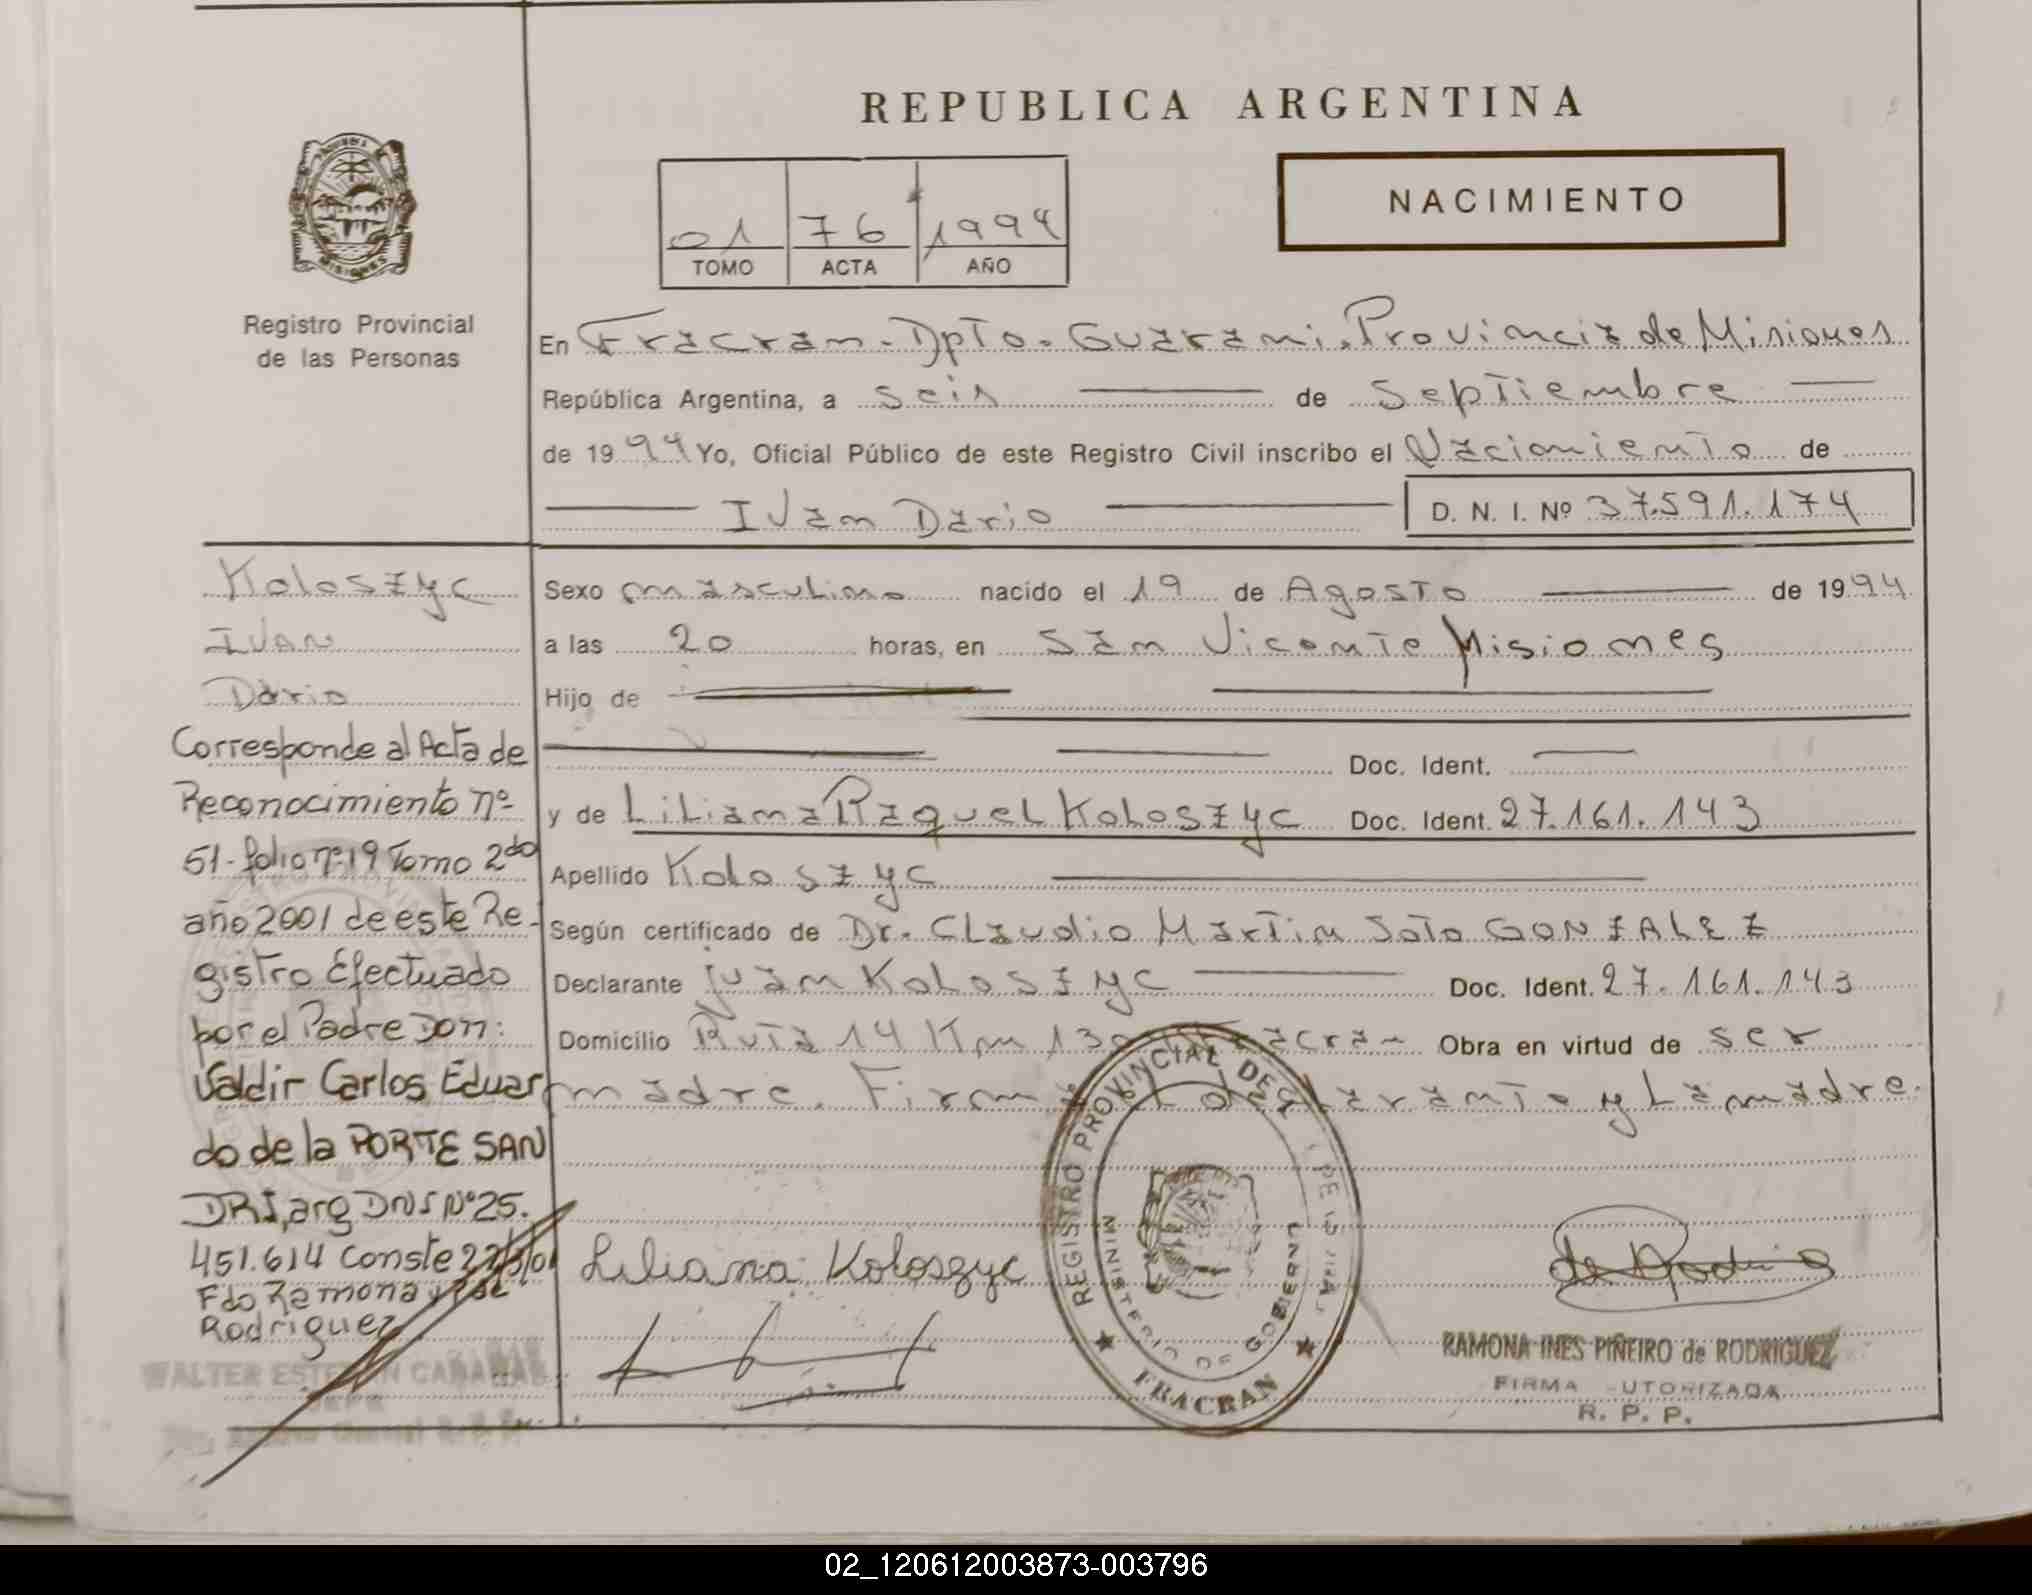 REPUBLICA ARGENTINA
NACIMIENTO
01 76 1994
TOMO ACTA AÑO
MISIONES
Registro Provincial
de las Personas
En Fracran - Dpto. Guarani. Provincia de Misiones
República Argentina, a seis de septiembre
de 1994 Yo, Oficial Público de este Registro Civil inscribo el Nacimiento de
Ivan Dario D. N. I. Nº 37.591.174
Koloszyc
Ivan
Dario
Corresponde al Acta de
Reconocimiento nº
51- folio nº 19 Tomo 2do
año 2001 de este Re-
gistro Efectuado
por el Padre Don:
Valdir Carlos Eduar
do de la PORTE SAN
DRI, arg DNI Nº 25.
451.614 Conste
Fdo Ramona
Rodriguez
WALTER
Sexo masculino nacido el 19 de Agosto de 1994
a las 20 horas, en San Vicente Misiones
Hijo de
Doc. Ident.
y de Liliana Raquel Koloszyc Doc. Ident. 27.161.143
Apellido Koloszyc
Según certificado de Dr. Claudio Martin Soto GONZALEZ
Declarante juan Koloszyc Doc. Ident. 27.161.143
Domicilio Ruta 14 Km Fracran Obra en virtud de ser
madre. Firma declarante y La madre.
Liliana Koloszyc
REGISTRO PROVINCIAL DE
MINISTERIO DE GOBIERNO
FRACRAN
RAMONA INES PIÑEIRO de RODRIGUEZ
FIRMA AUTORIZADA
R. P. P.
02_120612003873-003796